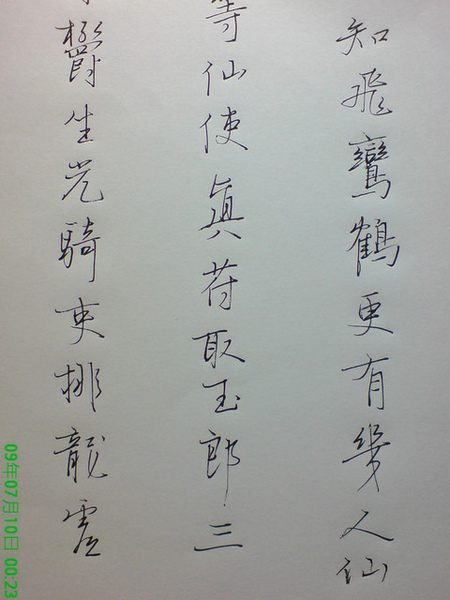 知飛鸞鶴更有幾人仙
等仙使眞荷取玉郎三
欝生光騎吏排龍
09年07月10日 00:23